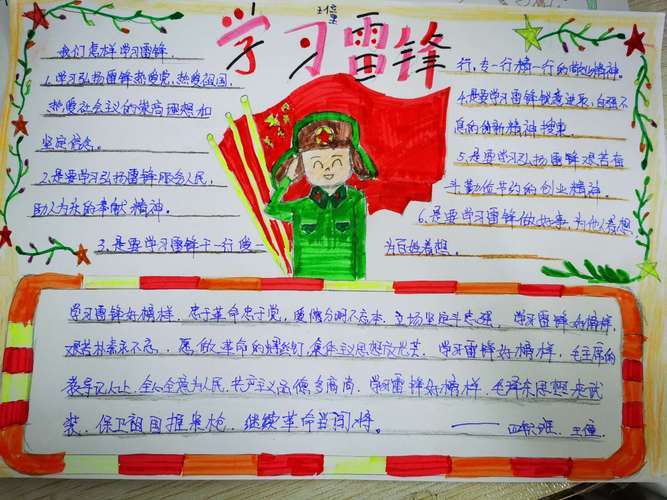 学习雷锋
我们怎样学习雷锋.
1.学习弘扬雷锋热爱党,热爱祖国,
热爱社会主义的崇高理想和
坚定信念.
2.是要学习弘扬雷锋服务人民,
助人为乐的奉献精神.
3.是要学习雷锋干一行爱一
行,专一行精一行的敬业精神。
4.是要学习雷锋锐意进取,自强不
息的创新精神
5.是要学习弘扬雷锋艰苦奋
斗勤俭节约的创业精神。
6.是要学习雷锋做好事,为他人着想
为百姓着想。
学习雷锋好榜样.忠于革命忠于党,爱憎分明不忘本.立场坚定斗志强,学习雷锋好榜样,
艰苦朴素永不忘..愿做革命的螺丝钉.集体主义思想放光芒.学习雷锋好榜样,毛主席的
教导记心上,全心全意为人民,共产主义品德多高尚.学习雷锋好榜样,毛泽东思想来武
装、保卫祖国握紧枪.继续革命当闯将。